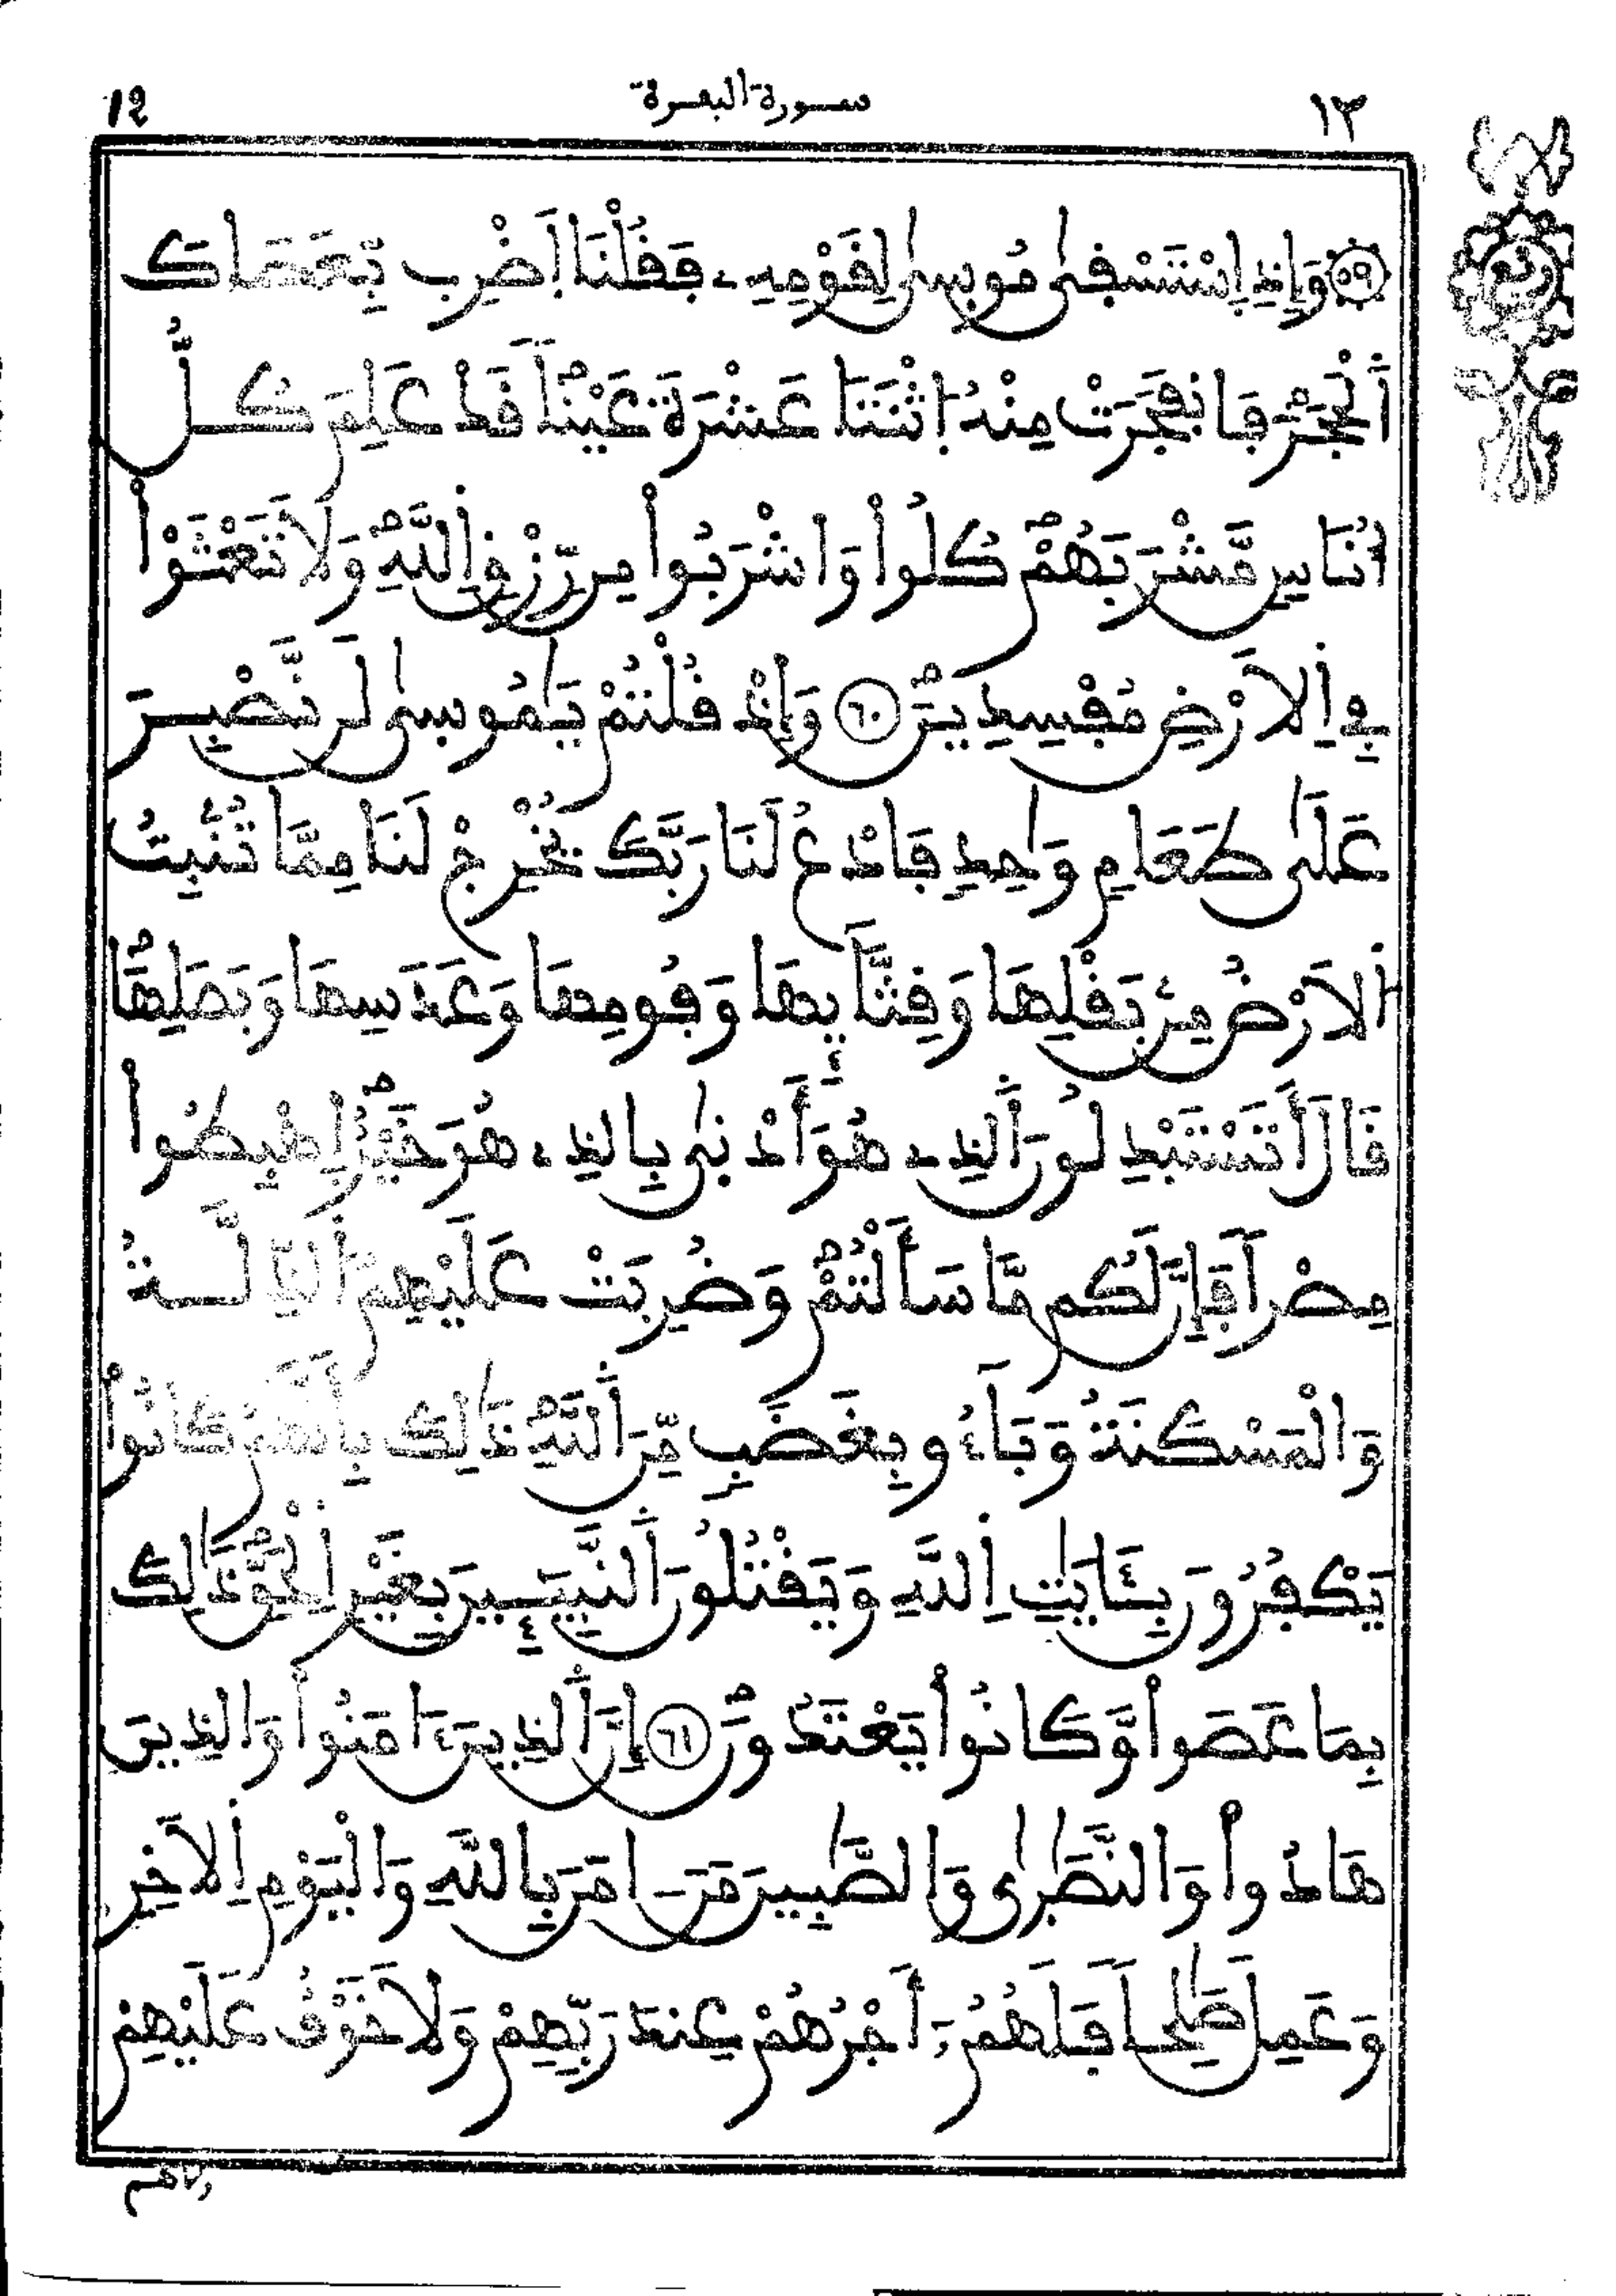 12 سورة البقرة ١٢
ربع
٥٩ وَإِذِ اِسْتَسْقىٰ مُوسىٰ لِقَوْمِهِۦ فَقُلْنَا اَضْرِب بِّعَصَاكَ
اَ۬لْحَجَرَ فَانفَجَرَتْ مِنْهُ اُ۪ثْنَتَا عَشْرَةَ عَيْناٗ قَدْ عَلِمَ كُلُّ
أُنَاسٖ مَّشْرَبَهُمْ كُلُواْ وَاشْرَبُواْ مِن رِّزْقِ اِ۬للَّهِ وَلَا تَعْثَوْاْ
فِے اِ۬لَارْضِ مُفْسِدِينَ ٦٠ وَإِذْ قُلْتُمْ يَٰمُوسىٰ لَن نَّصْبِرَ
عَلَىٰ طَعَامٖ وَٰحِدٖ فَادْعُ لَنَا رَبَّكَ يُخْرِجْ لَنَا مِمَّا تُنۢبِتُ
اُ۬لَارْضُ مِنۢ بَقْلِهَا وَقِثَّآئِهَا وَفُومِهَا وَعَدَسِهَا وَبَصَلِهَا
قَالَ أَتَسْتَبْدِلُونَ اَ۬لذِے هُوَ أَدْنىٰ بِالذِے هُوَ خَيْرٌ اِ۪هْبِطُواْ
مِصْراٗ فَإِنَّ لَكُم مَّا سَأَلْتُمْ وَضُرِبَتْ عَلَيْهِمُ اُ۬لذِّلَّةُ
وَالْمَسْكَنَةُ وَبَآءُو بِغَضَبٖ مِّنَ اَ۬للَّهِ ذَٰلِكَ بِأَنَّهُمْ كَانُواْ
يَكْفُرُونَ بِـَٔايَٰتِ اِ۬للَّهِ وَيَقْتُلُونَ اَ۬لنَّبِيٓـِٕينَ بِغَيْرِ اِ۬لْحَقِّ ذَٰلِكَ
بِمَا عَصَواْ وَّكَانُواْ يَعْتَدُونَ ٦١ إِنَّ اَ۬لذِينَ ءَامَنُواْ وَالذِينَ
هَادُواْ وَالنَّصَٰرىٰ وَالصَّٰبِينَ مَنَ اٰمَنَ بِاللَّهِ وَالْيَوْمِ اِ۬لَاخِرِ
وَعَمِلَ صَٰلِحاٗ فَلَهُمُۥٓ أَجْرُهُمْ عِندَ رَبِّهِمْ وَلَا خَوْفٌ عَلَيْهِمْ
ولاهم